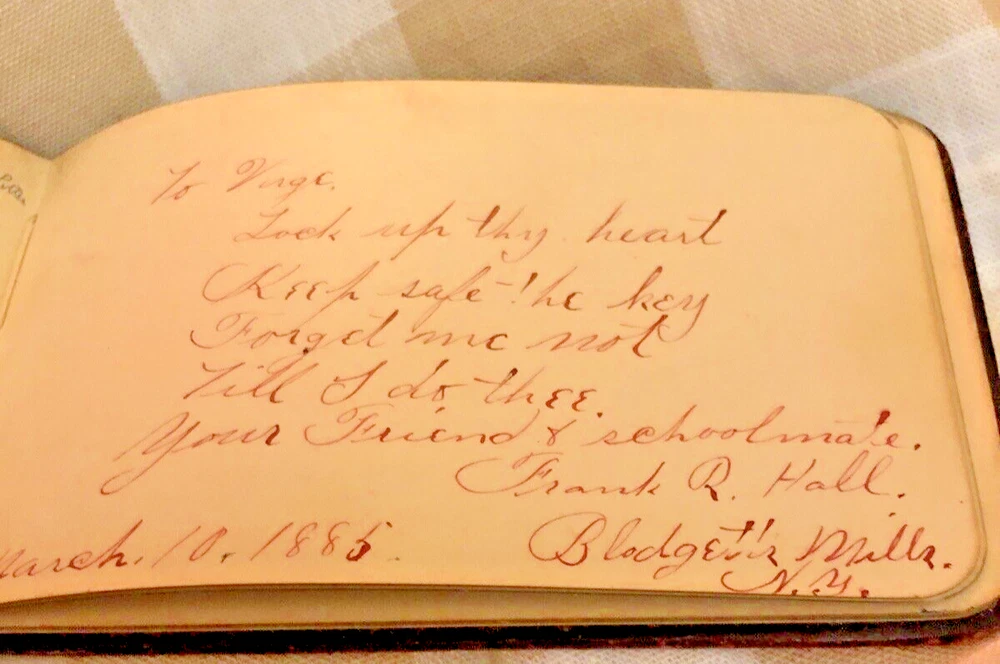 To Virge.
Lock up thy heart
Keep safe the key
Forget me not
Till I do thee.
Your Friend & schoolmate.
Frank R. Hall.
March. 10. 1885.
Blodgett's Mills.
N.Y.